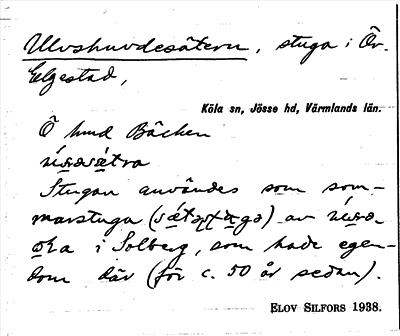 Ulvshuvdesätern, stuga i Öv.
Elgestad,
Köla sn, Jösse hd, Värmlands län.
Ö hmd Bäcken
Stugan användes som som-
marstuga av
i Solberg, som hade egen-
dom där (för c. 50 år sedan).
ELOV SILFORS 1938.